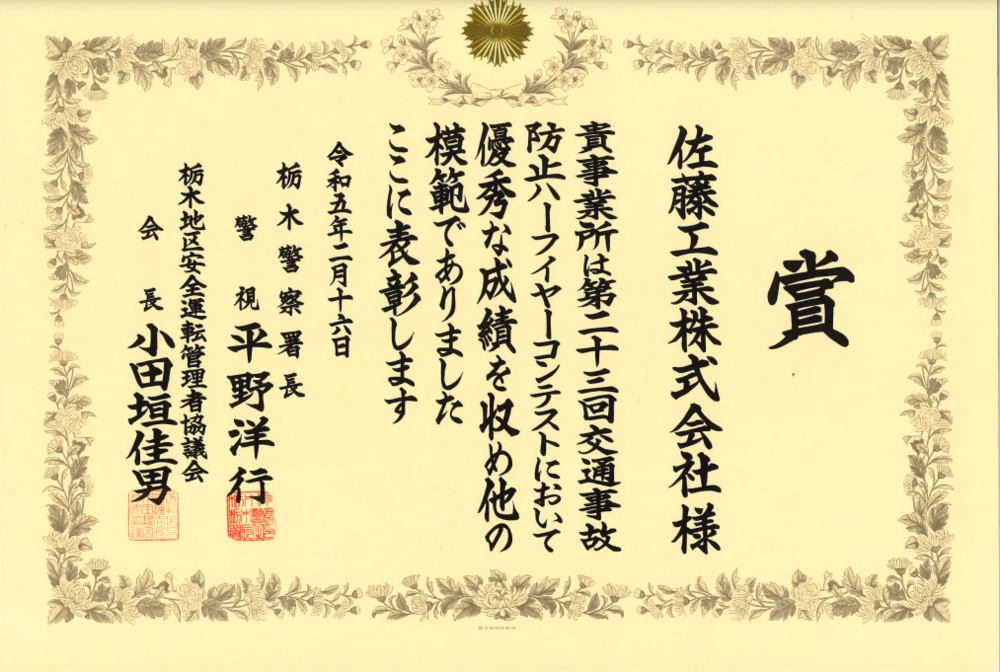 賞
佐藤工業株式会社様
貴事業所は第二十三回交通事故
防止ハーフイヤーコンテストにおいて
優秀な成績を収め他の
模範でありました
ここに表彰します
令和五年二月十六日
栃木警察署長
警視 平野洋行
栃木地区安全運転管理者協議会
会長 小田垣佳男